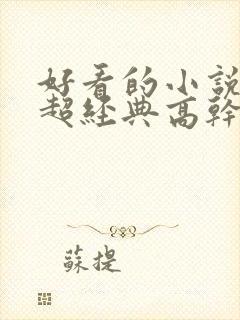 好看的小說
超經典高幹
蘇提